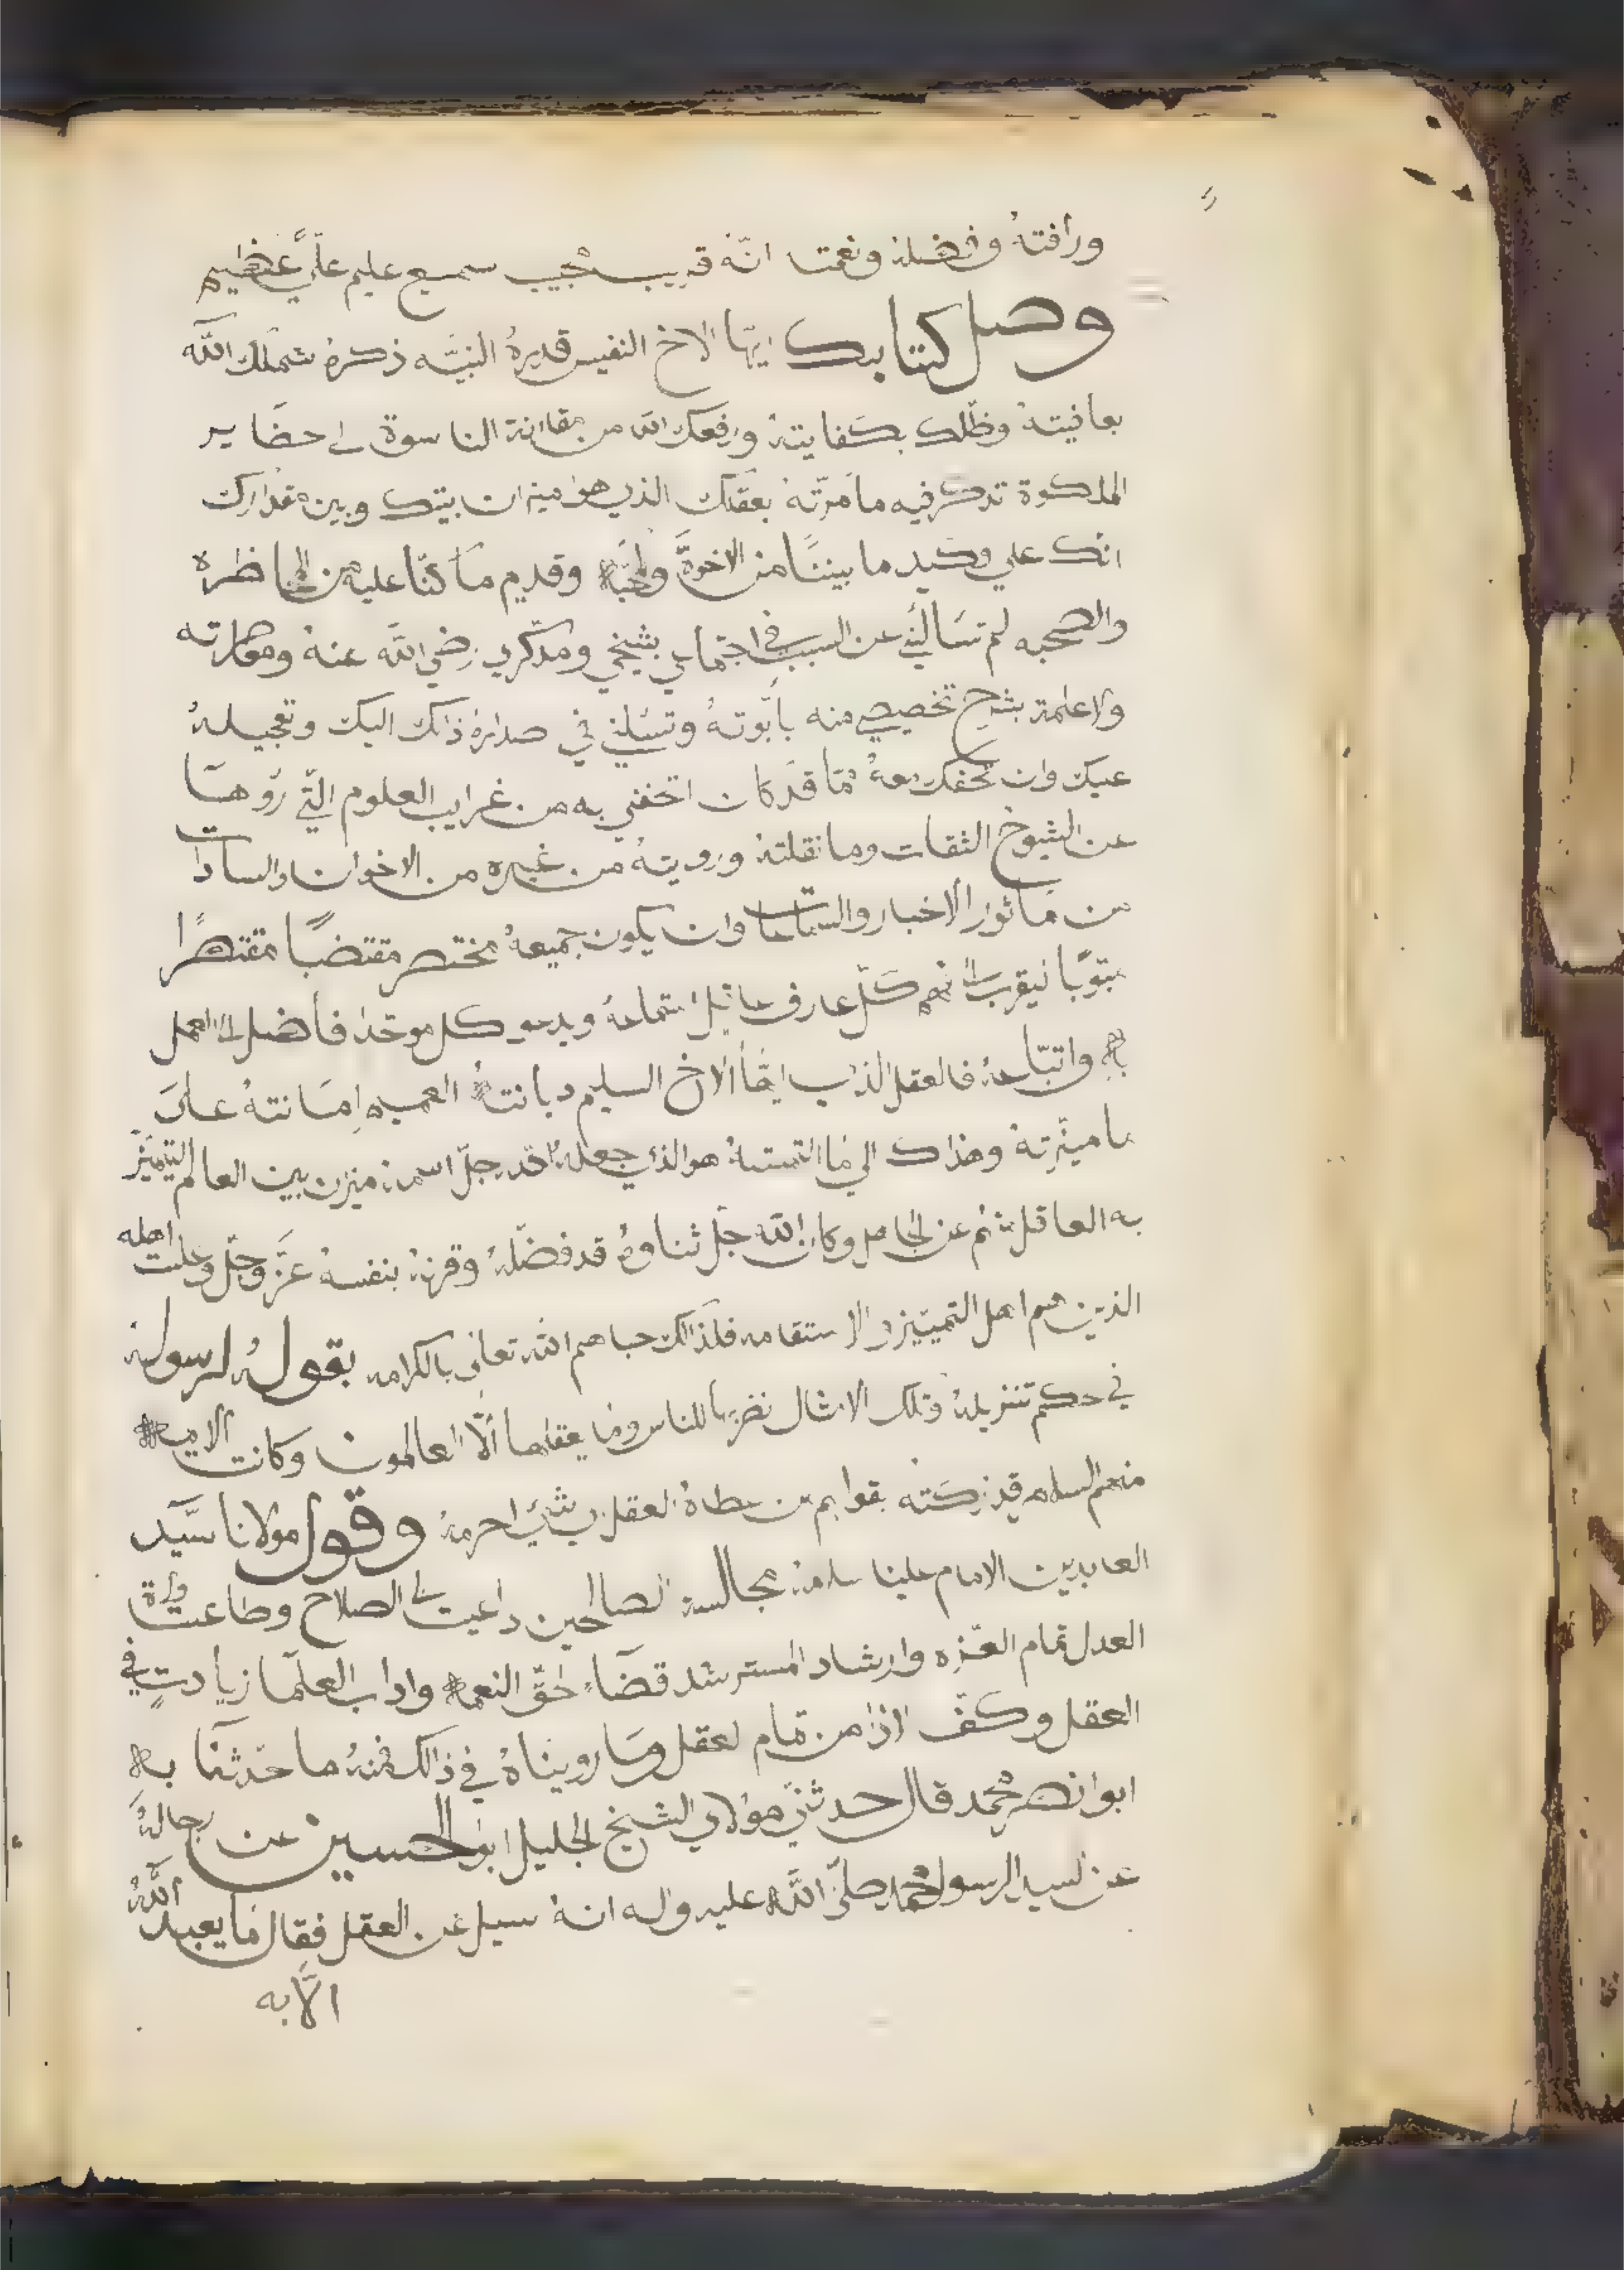 ورافتهُ وفضلهُ ونعمته انّه قريب مجيب سميع عليم عليّ عظيم
وصل كتابك ايّها الاخ النفيس قديرهُ النبيّه ذكرهُ شملك اللّه
بعافيتهُ وظلك بكفايتهُ ورفعك الله من مقارنة الناسوة الى حضاير
الملكوة تذكر فيه ما مرتهُ بعقلك الذي هوا ميزان بينك وبين مقدارك
انك على وكيد ما بيننا من الاخوة والمحبه وقديم ما كنّا عليه من المحاظره
والصحبه لم تسالني عن السبب في اجتماعي بشيخي ومذكري رضي اللّه عنهُ
ولا علمة بشرح تخصيصي منه بابوتهُ وتسلني في ذالك اليك وتعجيلهُ
وان تحفك معهُ ممّا قد كان اتحفني به من غرايب العلوم الّتي روها
عن الشيوخ الثقات وما نقلتهُ ورويتهُ من غيره من الاخوان والسادات
من ماثور الاخبار والسماعات وان يكون جميعهُ مختصر مقتضبًا مقتصرًا
مبوّبا ليقرب الى فهم كلّ عارف عاقل استماعهُ ويدعو كل موحّد فاضل الى العمل
به واتباعهُ فالعقل الذي ايها الاخ السليم ديانتهُ العميم امانتهُ على
ما ميّزتهُ وهذاك الى ما التمستهُ هو الذي جعلهُ الله جلّ اسمهُ ميزان بين العالم التميز
به العاقل منهم عن الجاهل وكان الله جلّ ثناوهُ قد فضّلهُ وقرنهُ بنفسهُ عزّ وجلّ اهله
الذين هم اهل التمييز والاستقامه فلذالك حباهم الله تعالى بالكرامه بقولهُ لرسولهُ
في حكم تنزيلهُ وتلك الامثال نضربها للناس وما يعقلها الّا العالمون وكانت الايمه
منهم السلام قد زكته بقولهم من عطاهُ العقل احرمهُ وقول مولانا سيّد
العابدين الامام علينا سلامهُ مجالسة الصالحين داعيت الى الصلاح وطاعت ولاة
العدل تمام العزه وارشاد المسترشد قضاء لحقّ النعمه واداب العلما زيادتٍ في
العقل وكفّ الاذا من تمام العقل وما رويناهُ في ذالك فمنهُ ما حدّثنا به
ابوا نصر محمد قال حدثني مولاي الشيخ الجليل ابو الحسين عن رجالهُ
عن السيد الرسول محمد صلّى اللّه عليه واله انهُ سيل عن العقل فقال ما يعبد اللّهُ
الّا به